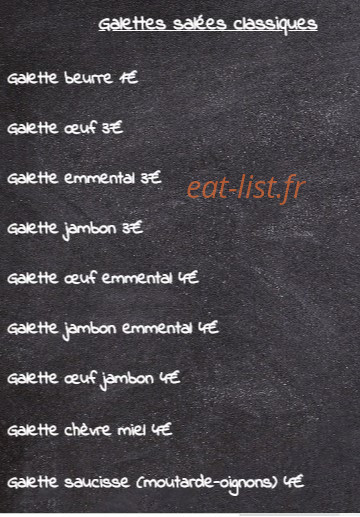 Galettes salées classiques
Galette beurre 1€
Galette œuf 3€
Galette emmental 3€
eat-list.fr
Galette jambon 3€
Galette œuf emmental 4€
Galette jambon emmental 4€
Galette œuf jambon 4€
Galette chèvre miel 4€
Galette saucisse (moutarde-oignons) 4€